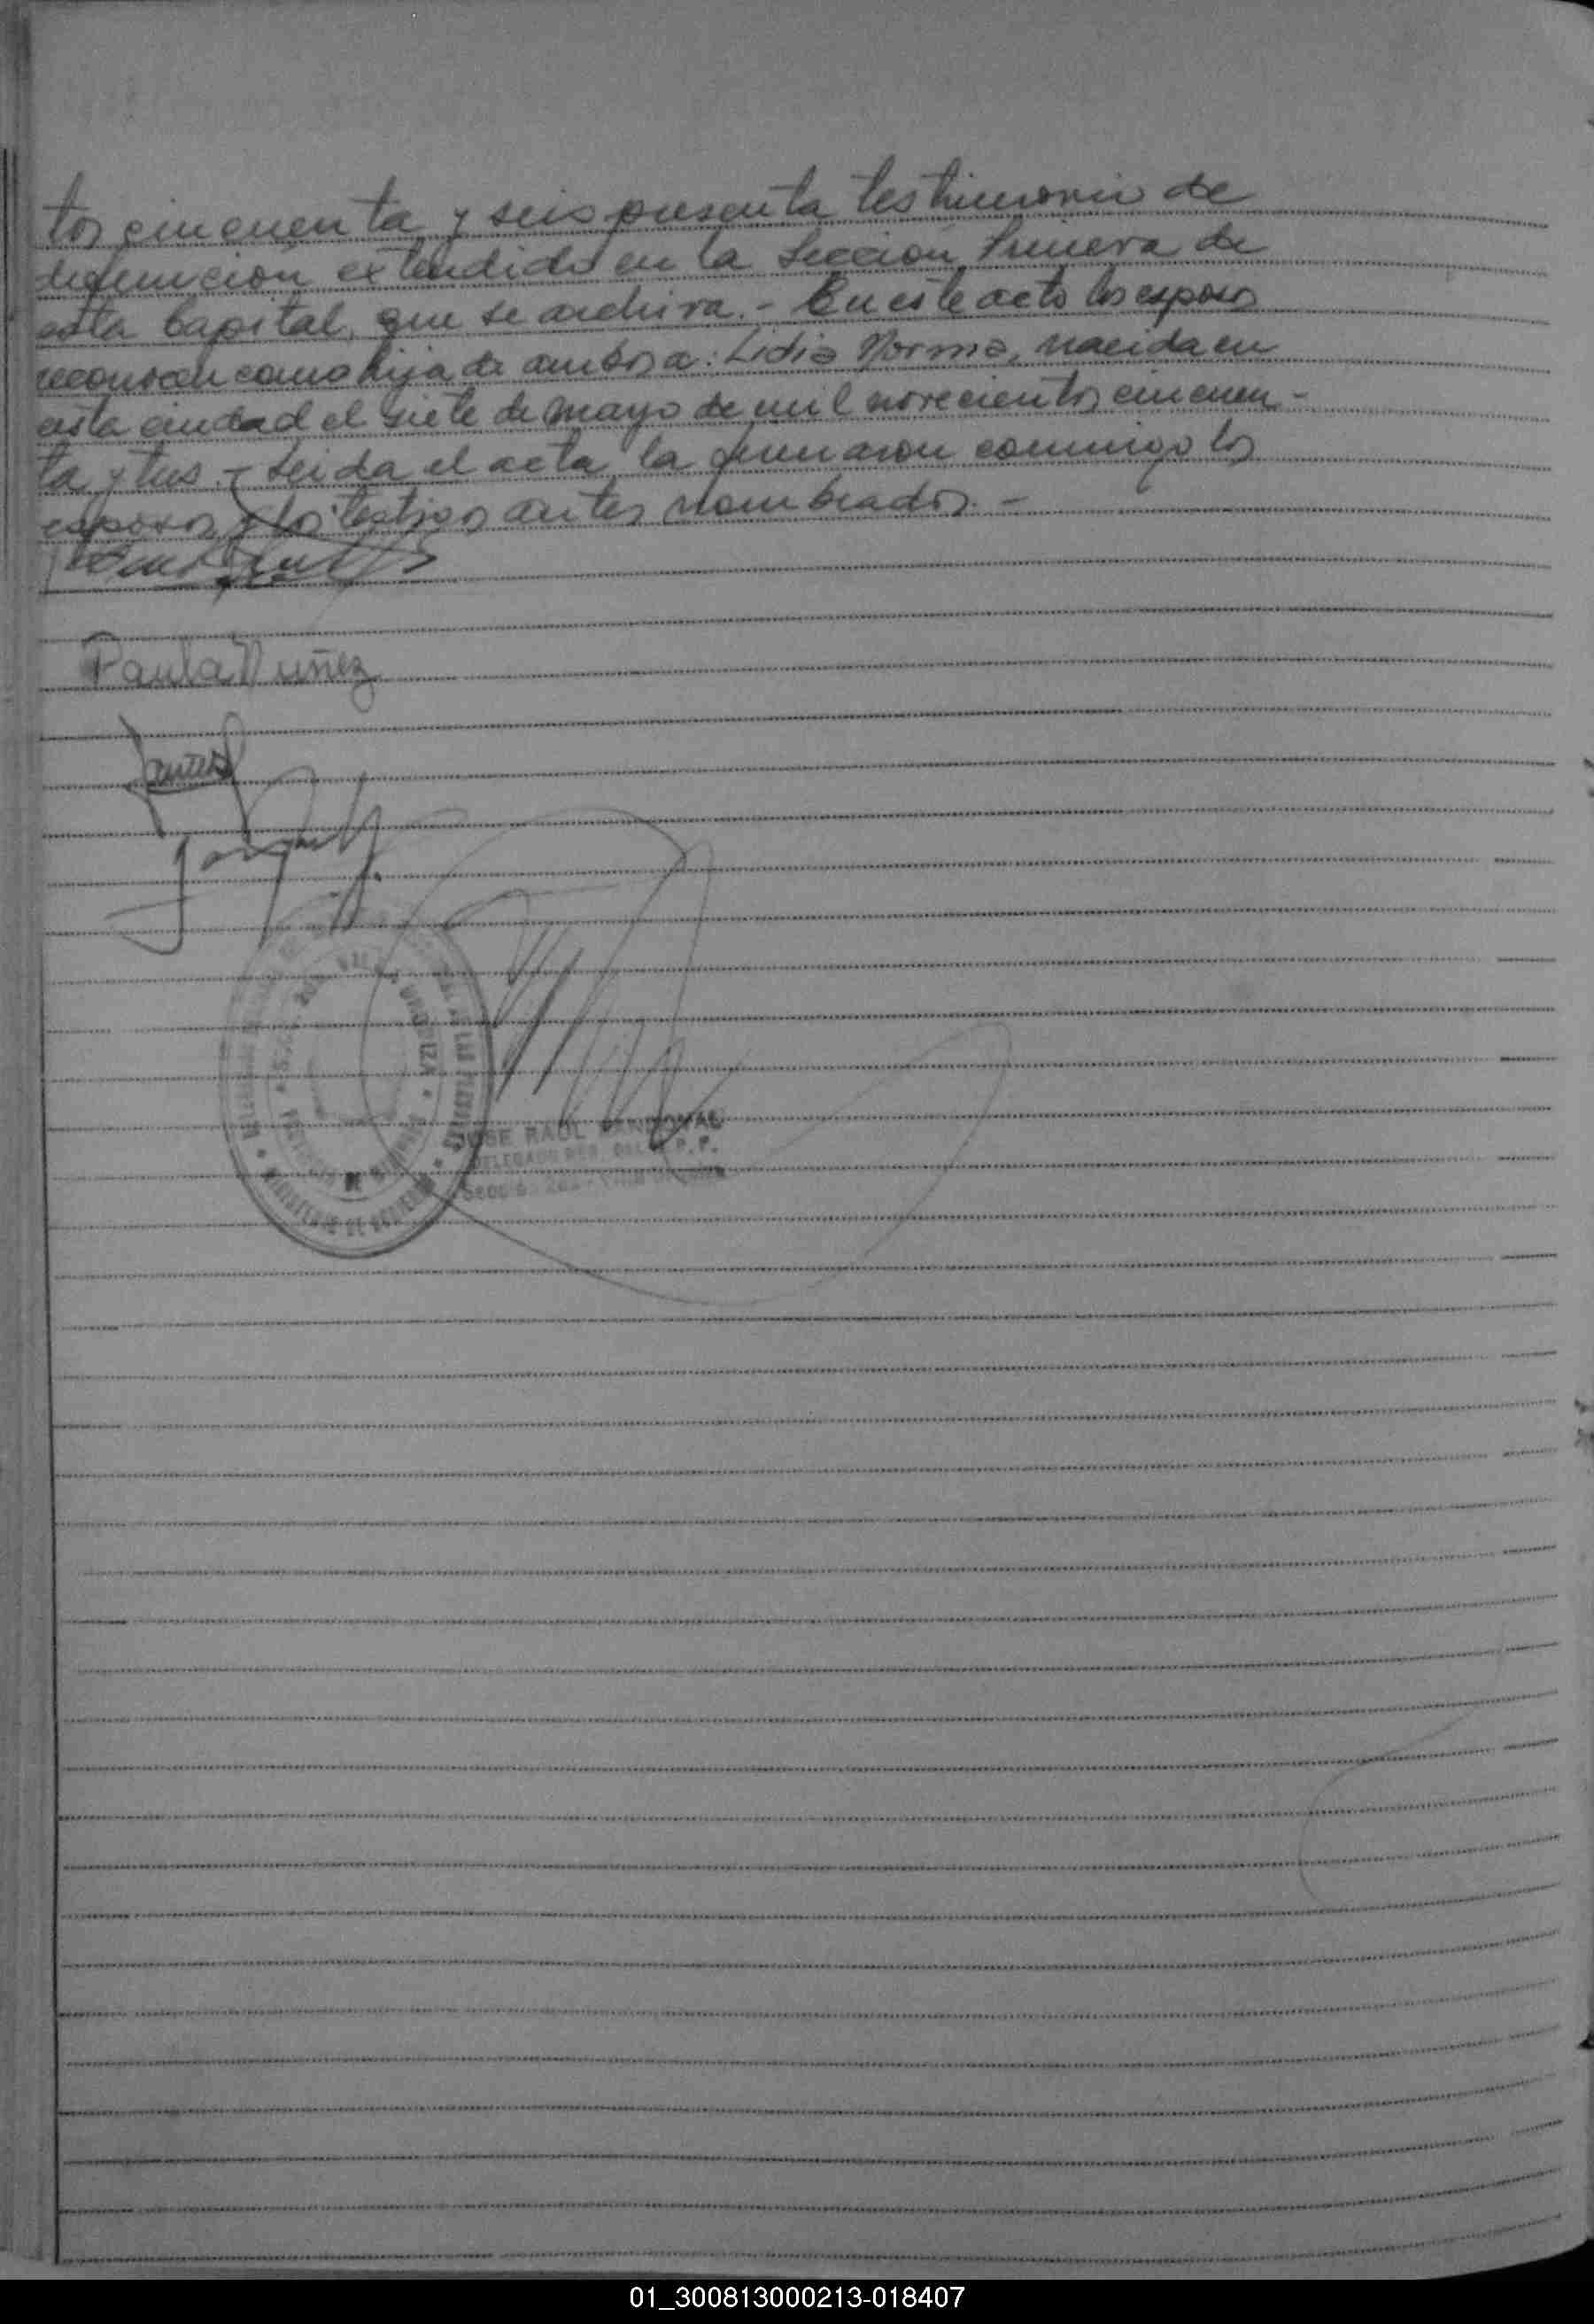 tos cincuenta y seis presenta testimonio de
defuncion extendido en la Sección Primera de
esta Capital, que se archiva.- En este acto los esposos
reconocen como hija de ambos a: Lidia Norma, nacida en
esta ciudad el siete de mayo de mil novecientos cincuen-
ta y tres.- Leida el acta la firmaron conmigo los
esposos y los testigos antes nombrados.-
Paula Nuñez
JOSE RAUL SANDOVAL
DELEGADO
01_300813000213-018407